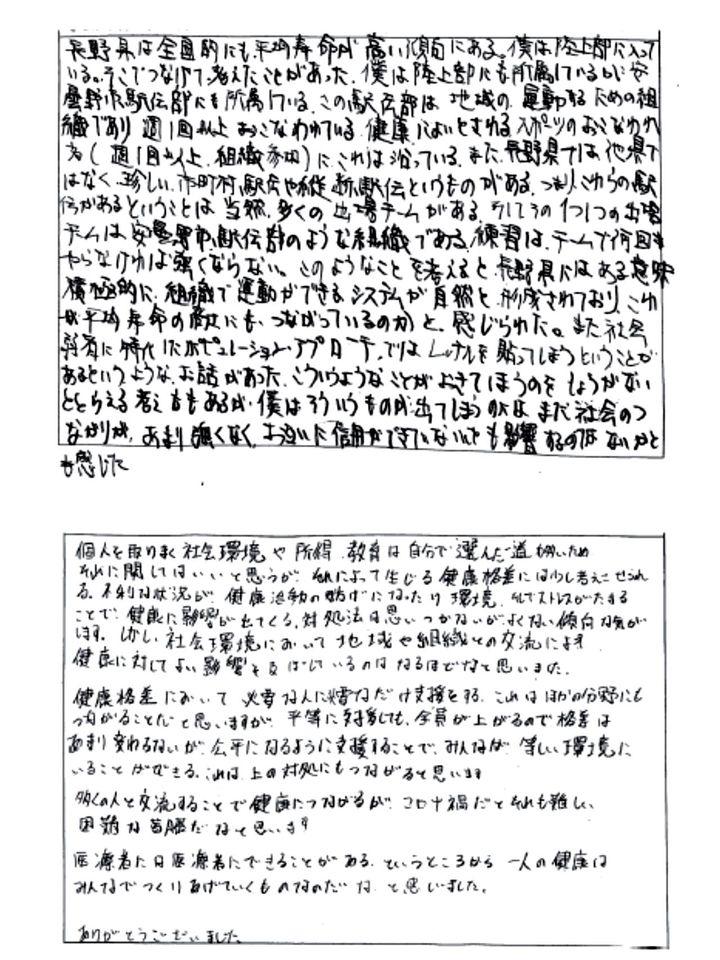 長野県は全国的にも平均寿命が高い傾向にある。僕は陸上部に入って
いる。そこでつなげて考えたことがあった。僕は陸上部にも所属しているが安
曇野市駅伝部にも所属している。この駅伝部は地域の運動するための組
織であり週1回以上おこなわれている。健康によいとされるスポーツのおこなわれ
方(週1回以上、組織参加)に、これは沿っている。また、長野県では他県で
はなく珍しい、市町村駅伝や縦断駅伝というものがある。つまりこれらの駅
伝があるということは当然、多くの出場チームがある。そしてその1つ1つの出場
チームは安曇野市駅伝部のような組織である。練習は、チームで何回も
やらなければ強くならない。このようなことを考えると、長野県にはある意味
積極的に、組織で運動ができるシステムが自然と形成されており、これ
が平均寿命の高さにも、つながっているのかと、感じられた。また社会
弱者に特化したポピュレーションアプローチ、ではレッテルを貼ってしまうということが
あるというような、お話があった。こういうようなことがおきてしまうのをしょうがない
ととらえる考え方もあるが、僕はそういうものが出てしまうのはまだ社会のつ
ながりが、あまり強くなく、お互いに信用ができていないことも影響するのではないかと
も感じた
個人を取りまく社会環境や所得、教育は自分で選んだ道も多いため
それに関してはいいと思うが、それによって生じる健康格差には少し考えさせられ
る。不利な状況が、健康活動の妨げになったり環境、そしてストレスがたまる
ことで、健康に影響が出てくる。対処法は思いつかないがよくない傾向な気が
します。しかし、社会環境において地域や組織との交流により
健康に対してよい影響を及ぼしているのはなるほどなと思いました。
健康格差において必要な人に必要なだけ支援をする。これはほかの分野にも
つながることだと思いますが、平等に支援しても、全員が上がるので格差は
あまり変わらないが、公平になるように支援することで、みんなが等しい環境に
いることができる。これは、上の対処にもつながると思います
多くの人と交流することで健康につながるが、コロナ禍だとそれも難しい、
困難な首題だなと思います
医療者には医療者にできることがある、というところから一人の健康は
みんなでつくりあげていくものなのだな、と思いました。
ありがとうございました。